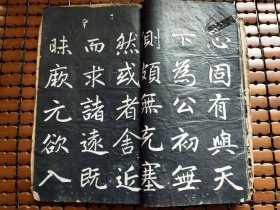 心固有與天
下為公初無
則頗無充塞
然或者舍近
而求諸遠既
昧厥元欲入